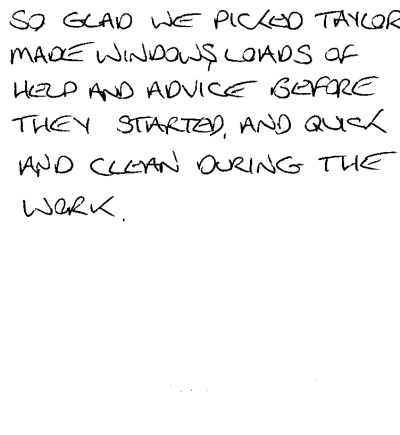 SO GLAD WE PICKED TAYLOR
MADE WINDOWS, LOADS OF
HELP AND ADVICE BEFORE
THEY STARTED, AND QUICK
AND CLEAN DURING THE
WORK.